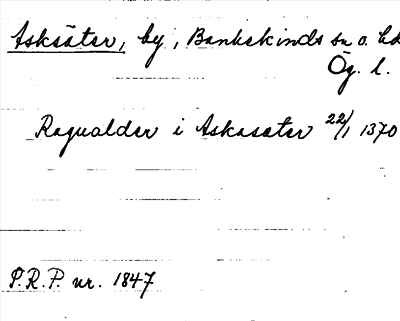 Asksäter, by, Bankekinds sn o. hd
Ög. l.
Ragualder i Askasæter 22/1 1370
P.R.P. nr. 1847